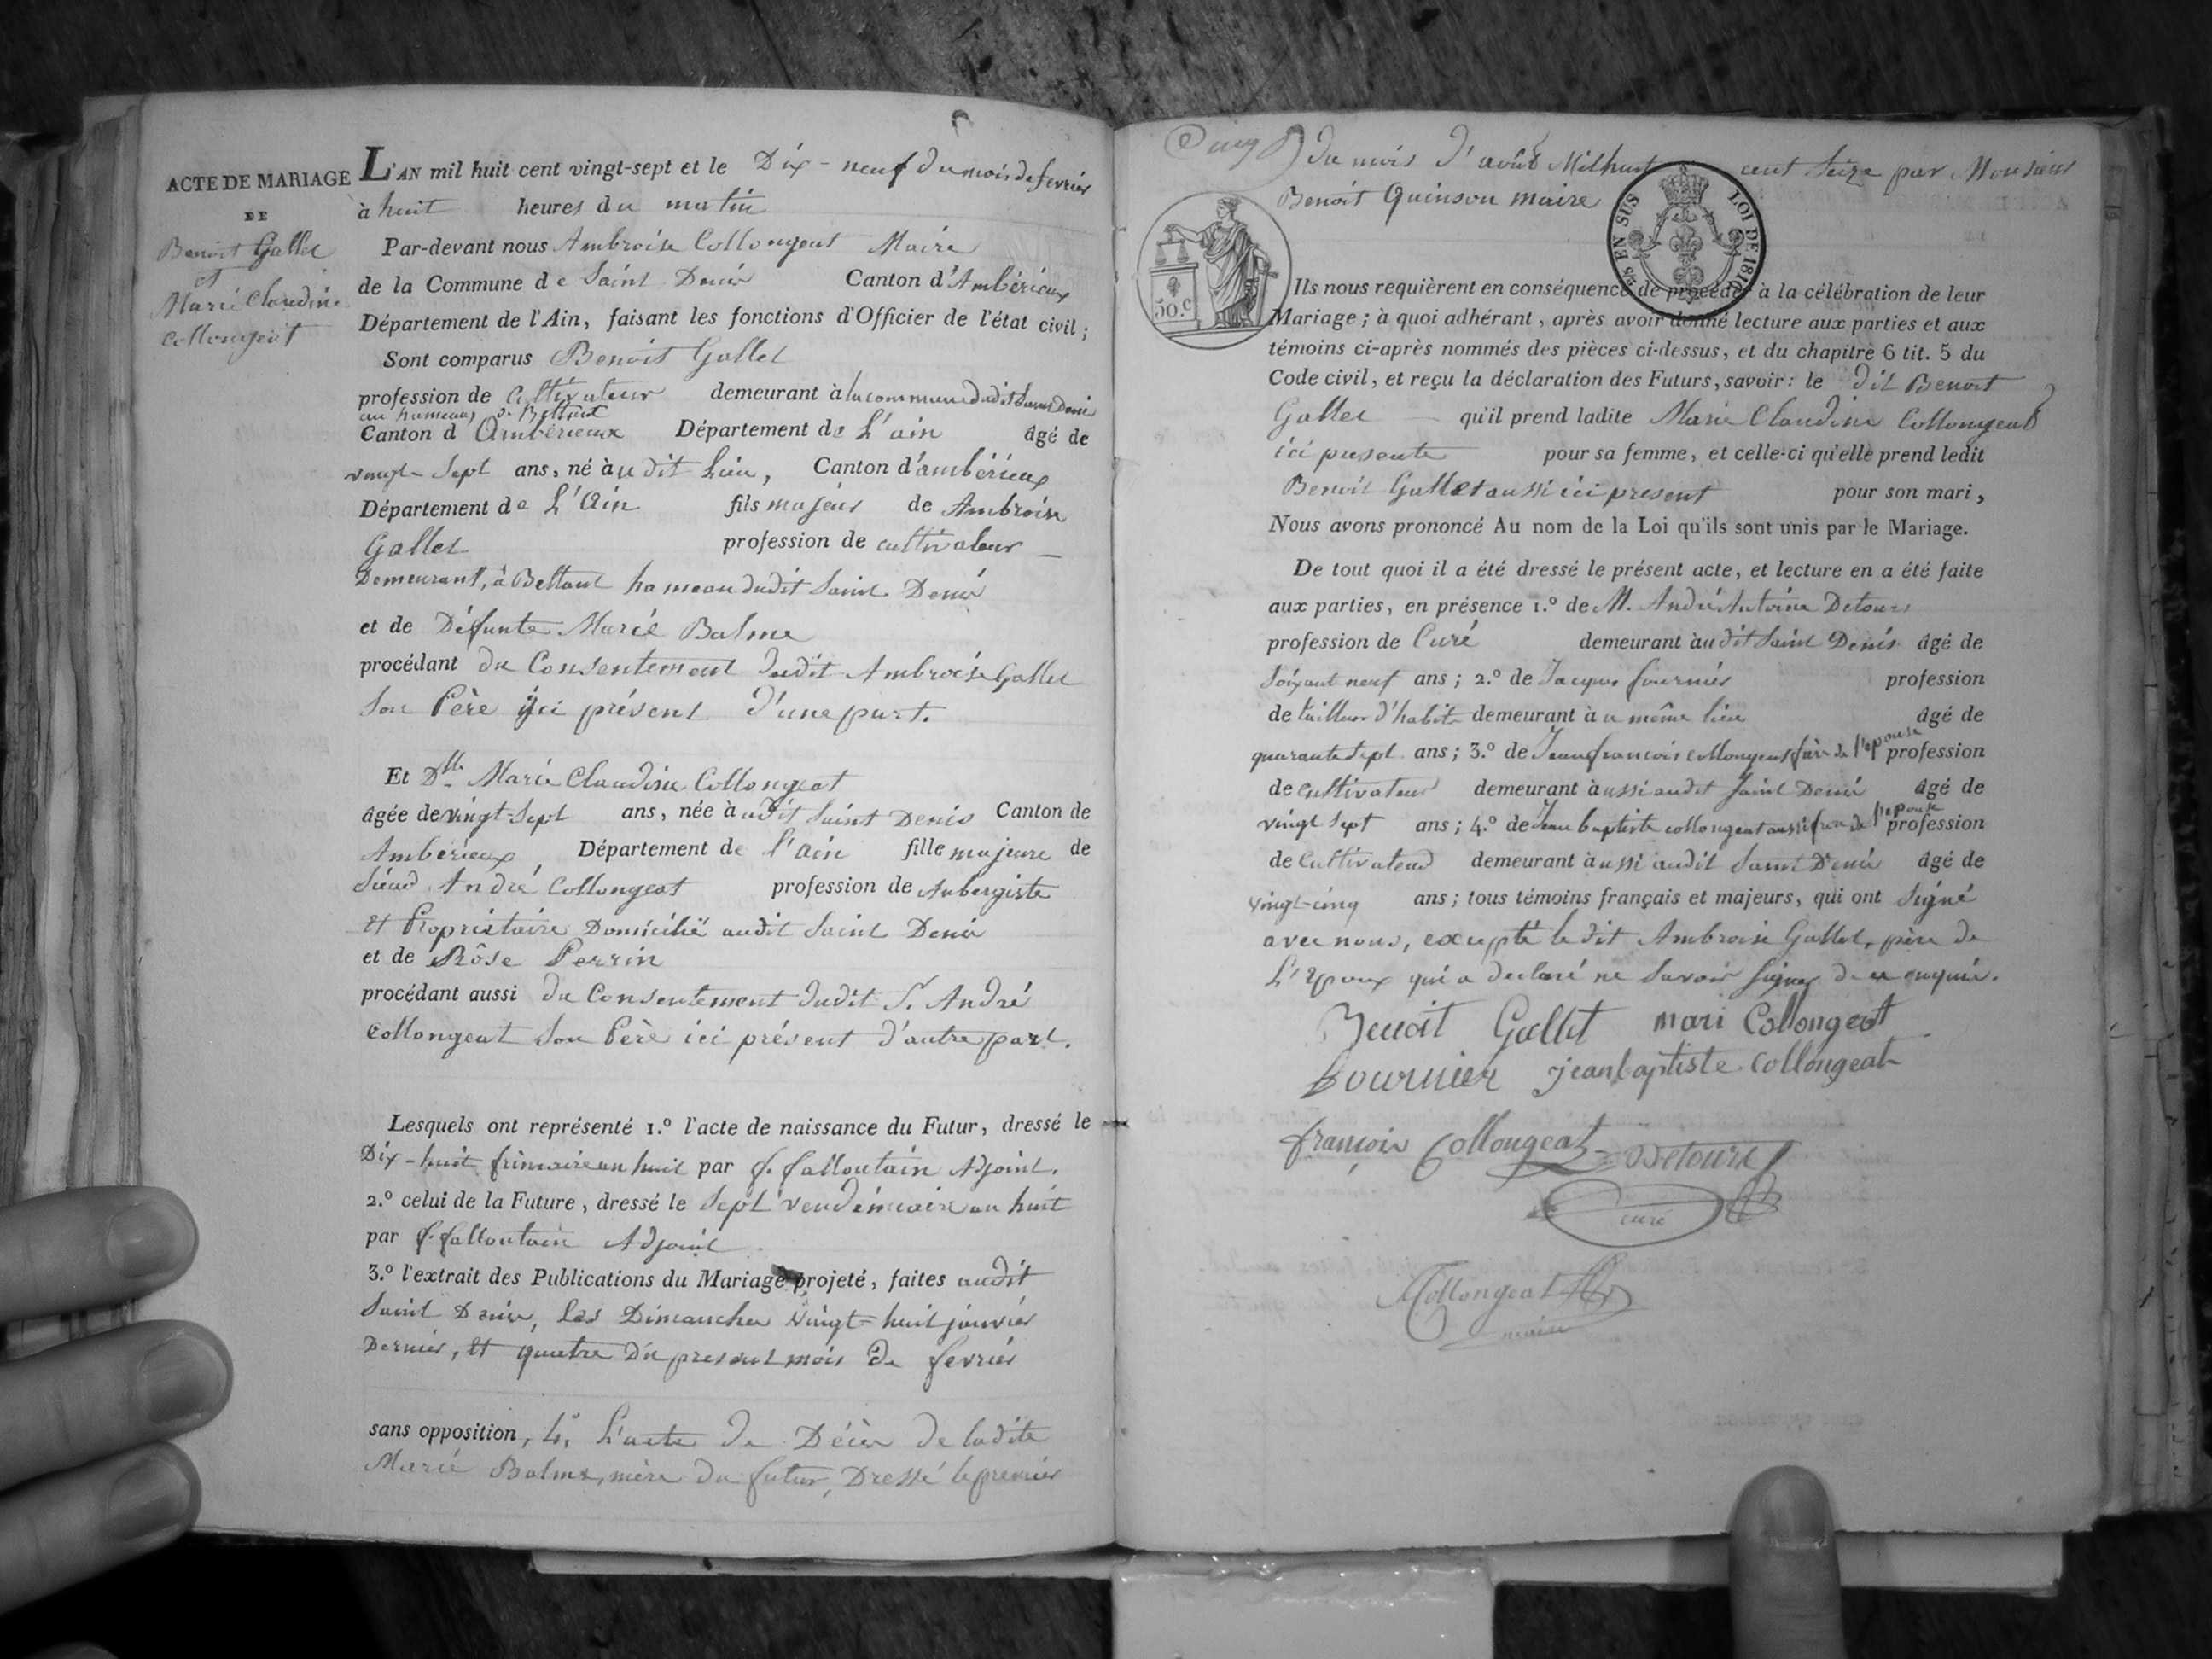 ACTE DE MARIAGE
DE
Benoit Gallet
et
Marie Claudine
Collongeat
L'AN mil huit cent vingt-sept et le Dix-neuf du mois de fevrier
à huit heures du matin
Par-devant nous Ambroise Collongeat Maire
de la Commune de Saint Denis Canton d'Ambérieux
Département de l'Ain, faisant les fonctions d'Officier de l'état civil;
Sont comparus Benoit Gallet
profession de Cultivateur demeurant à la commune dudit Saint Denis
au hameau de Bettant
Canton d'Ambérieux Département de L'ain âgé de
vingt-sept ans, né àu dit Lieu, Canton d'ambérieux
Département de L'Ain fils majeur de Ambroise
Gallet profession de cultivateur
Demeurant, à Bettant hameau dudit Saint Denis
et de Défunte Marie Balme
procédant du Consentement dudit Ambroise Gallet
son Père ici présent d'une part.
Et Dlle Marie Claudine Collongeat
âgée de vingt-sept ans, née à udit Saint Denis Canton de
Ambérieux, Département de l'ain fille majeure de
Sieur André Collongeat profession de Aubergiste
et Propriétaire Domicilié audit Saint Denis
et de Rôse Perrin
procédant aussi du Consentement dudit Sr. André
Collongeat son Père ici présent d'autre part.
Lesquels ont représenté 1.º l'acte de naissance du Futur, dressé le
Dix-huit frimaire an huit par f. falloutain Adjoint.
2.º celui de la Future, dressé le Sept vendémiaire an huit
par f. falloutain Adjoint
3.º l'extrait des Publications du Mariage projeté, faites audit
Saint Denis, les Dimanches vingt-huit janvier
Dernier, et quatre du present mois de fevrier
sans opposition, 4º L'acte de Décès de ladite
Marie Balme, mère du futur, Dressé le premier
du mois d'août Mil huit cent seize par Monsieur
Benoit Quinson maire
50.C
EN SUS LOI DE 1816
Ils nous requièrent en conséquence de procéder à la célébration de leur
Mariage; à quoi adhérant, après avoir donné lecture aux parties et aux
témoins ci-après nommés des pièces ci-dessus, et du chapitre 6 tit. 5 du
Code civil, et reçu la déclaration des Futurs, savoir: le dit Benoit
Gallet qu'il prend ladite Marie Claudine Collongeat
ici presente pour sa femme, et celle-ci qu'elle prend ledit
Benoit Gallet aussi ici present pour son mari,
Nous avons prononcé Au nom de la Loi qu'ils sont unis par le Mariage.
De tout quoi il a été dressé le présent acte, et lecture en a été faite
aux parties, en présence 1.º de M. André Antoine Detours
profession de Curé demeurant àudit Saint Denis âgé de
Soixant neuf ans; 2.º de Jacques fournier profession
de tailleur d'habits demeurant à u même lieu âgé de
quarante sept ans; 3.º de Jean françois collongeat frère de l'epouse profession
de Cultivateur demeurant àussi audit Saint Denis âgé de
vingt sept ans; 4.º de Jean baptiste collongeat aussi frere de l'epouse profession
de Cultivateur demeurant àussi audit Saint Denis âgé de
vingt-cinq ans; tous témoins français et majeurs, qui ont signé
avec nous, excepté le dit Ambroise Gallet, père de
L'epoux qui a declaré ne savoir signer de ce enquis.
Benoit Gallet mari Collongeat
fournier jean baptiste collongeat
françois Collongeat Detours
curé
Collongeat
maire